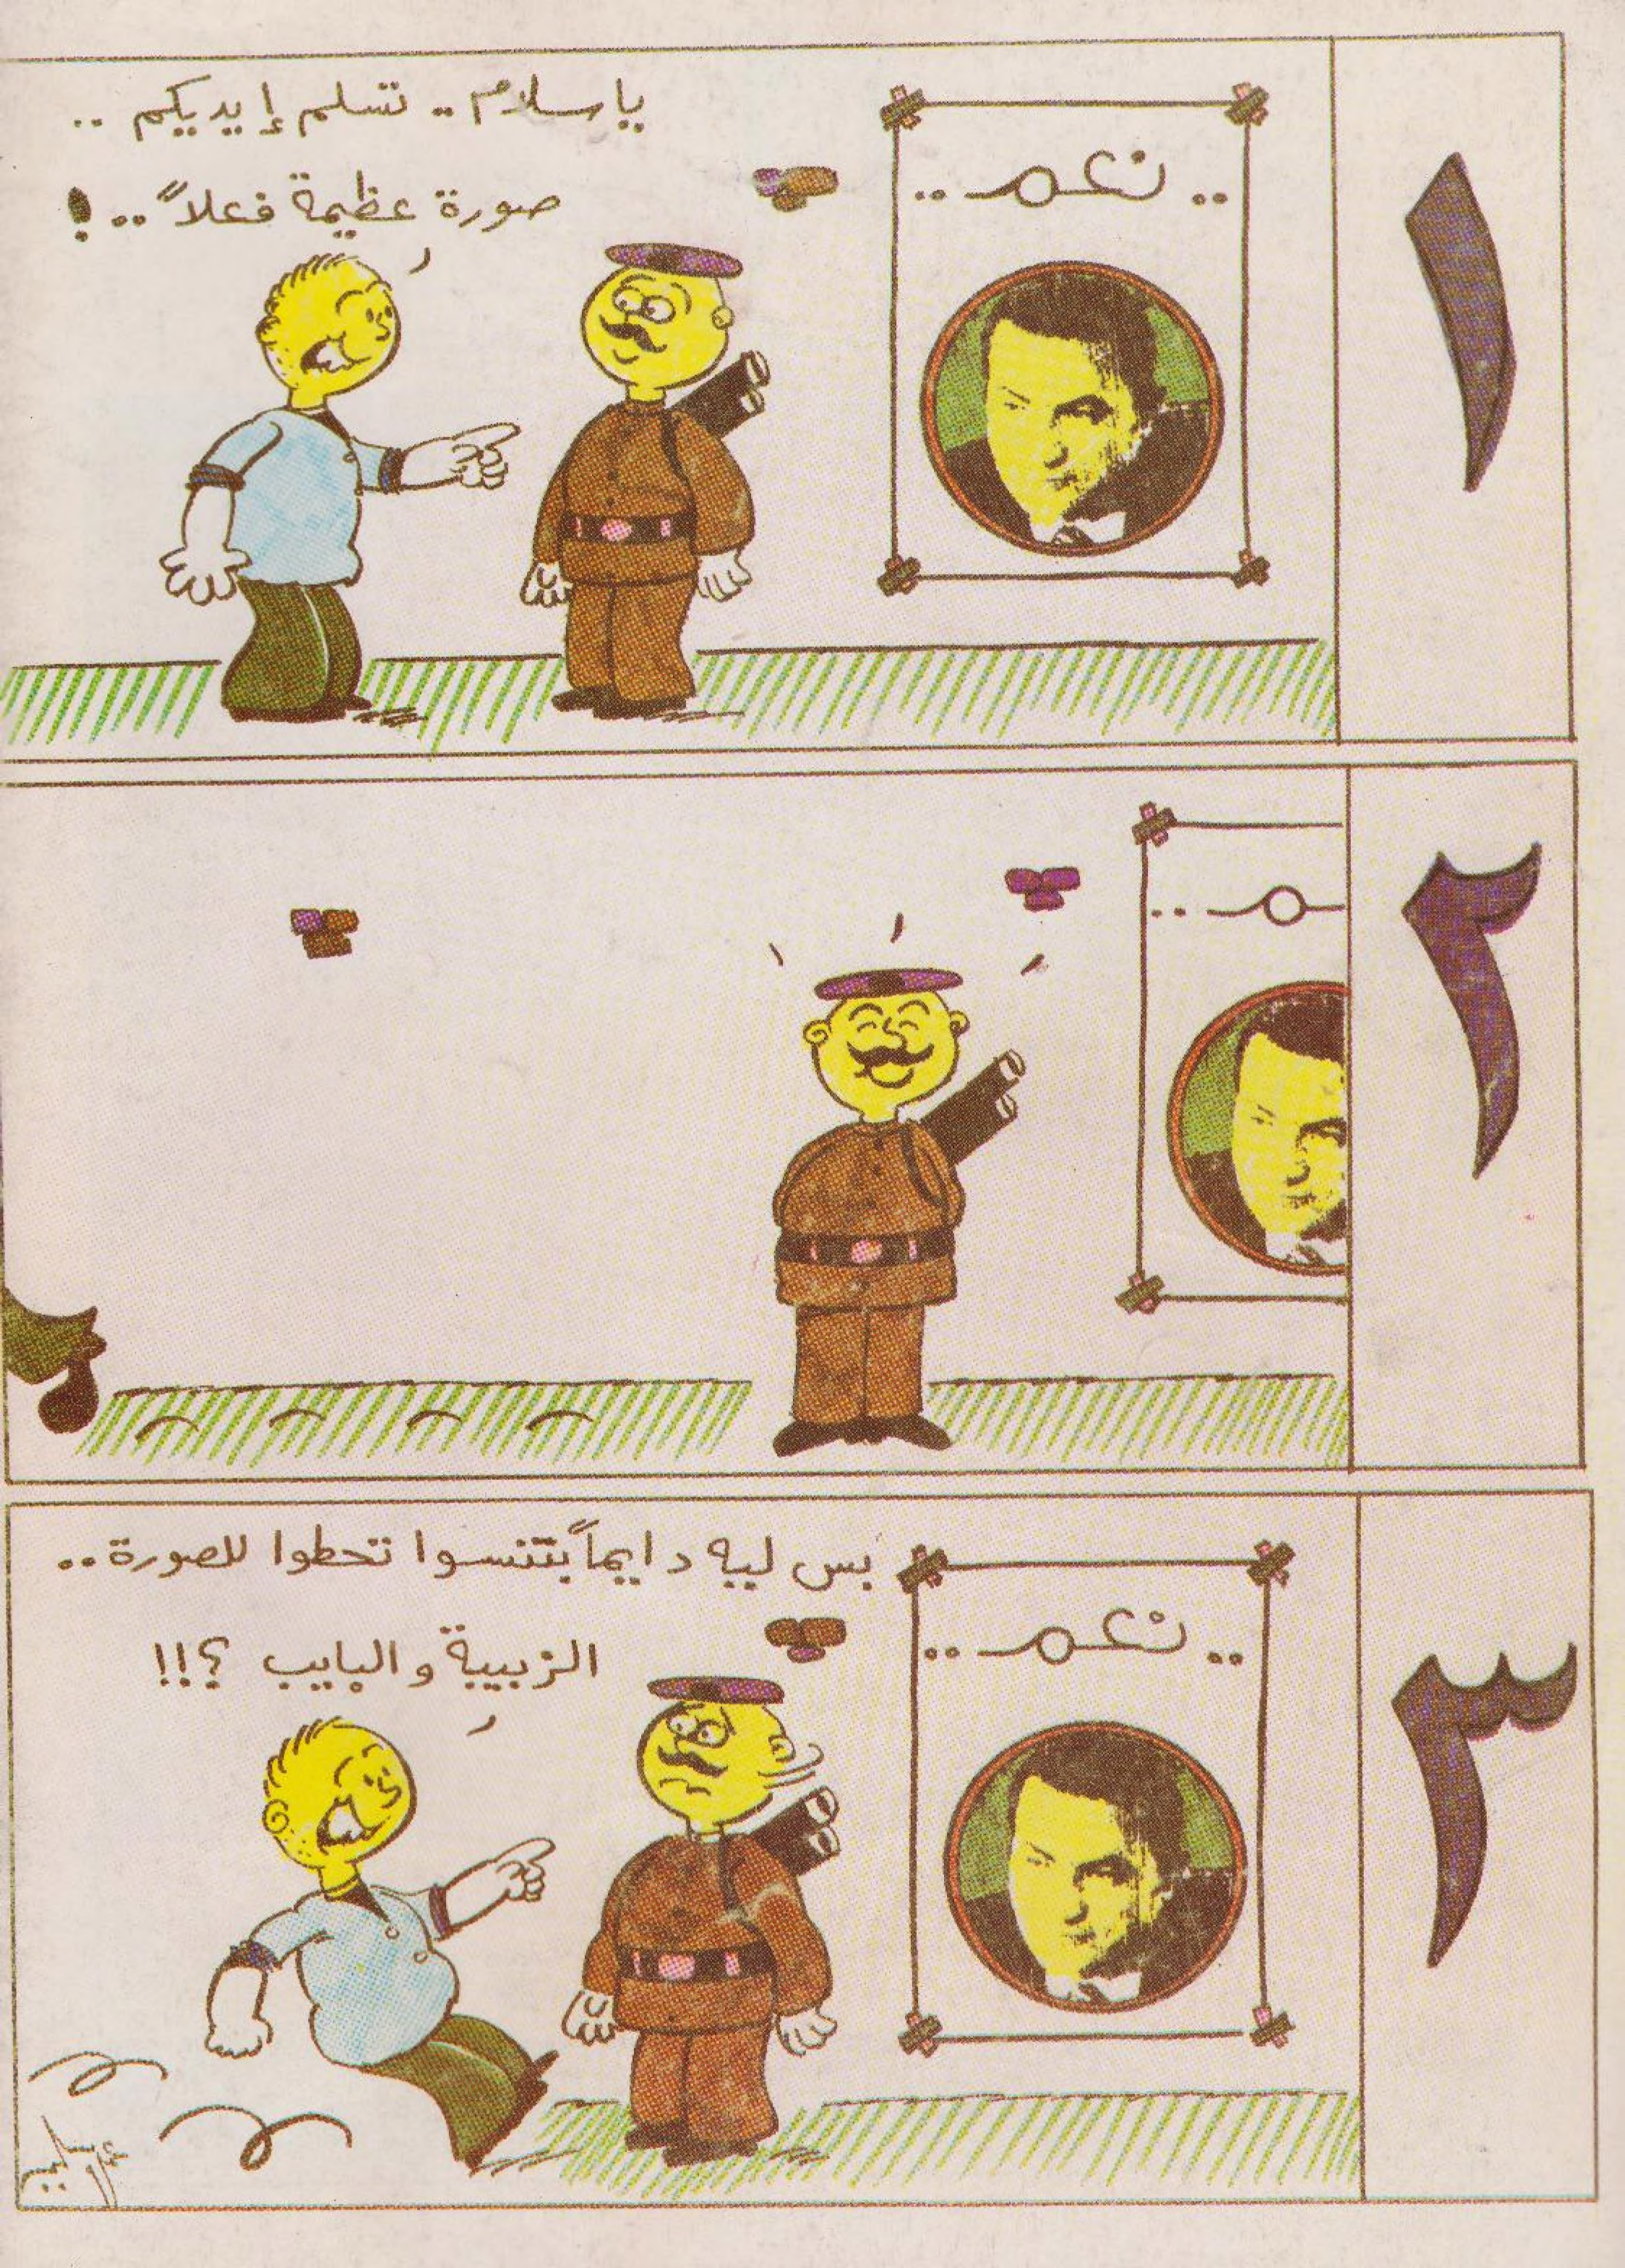 ١
ياسلام .. تسلم إيديكم ..
صورة عظيمة فعلاً .. !
.. نعم ..
٢
٣
بس ليه دايماً بتنسوا تحطوا للصورة ..
الزبيبة والبايب ؟!!
.. نعم ..